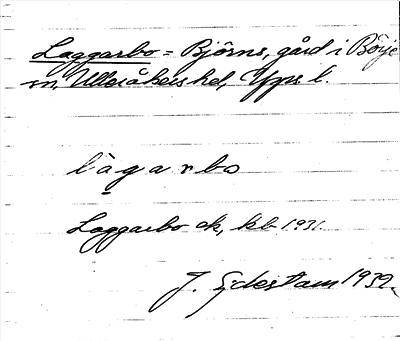 Laggarbo = Björns, gård i Börje
sn, Ulleråkers hd, Upps. l.
làgarbo
Laggarbo ek, kb 1931.
J. Eydestam 1932.